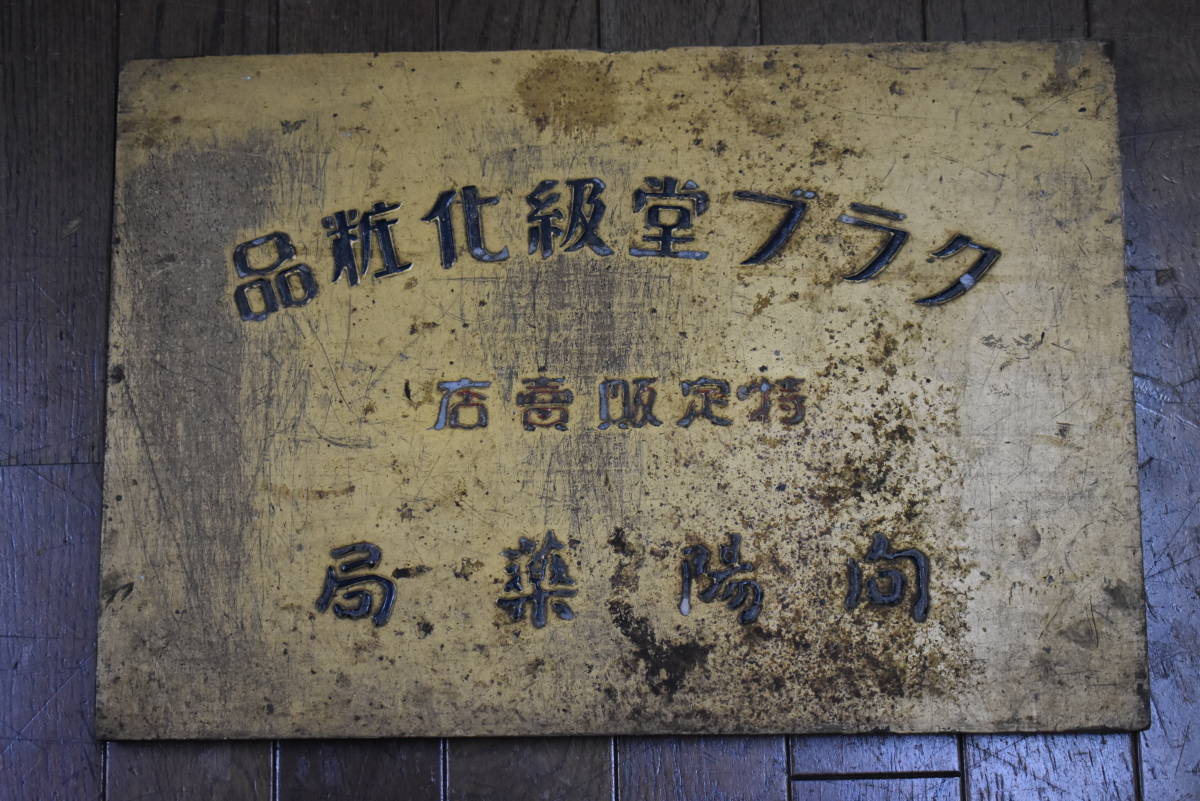 クラブ堂級化粧品
特定販賣店
向陽薬局